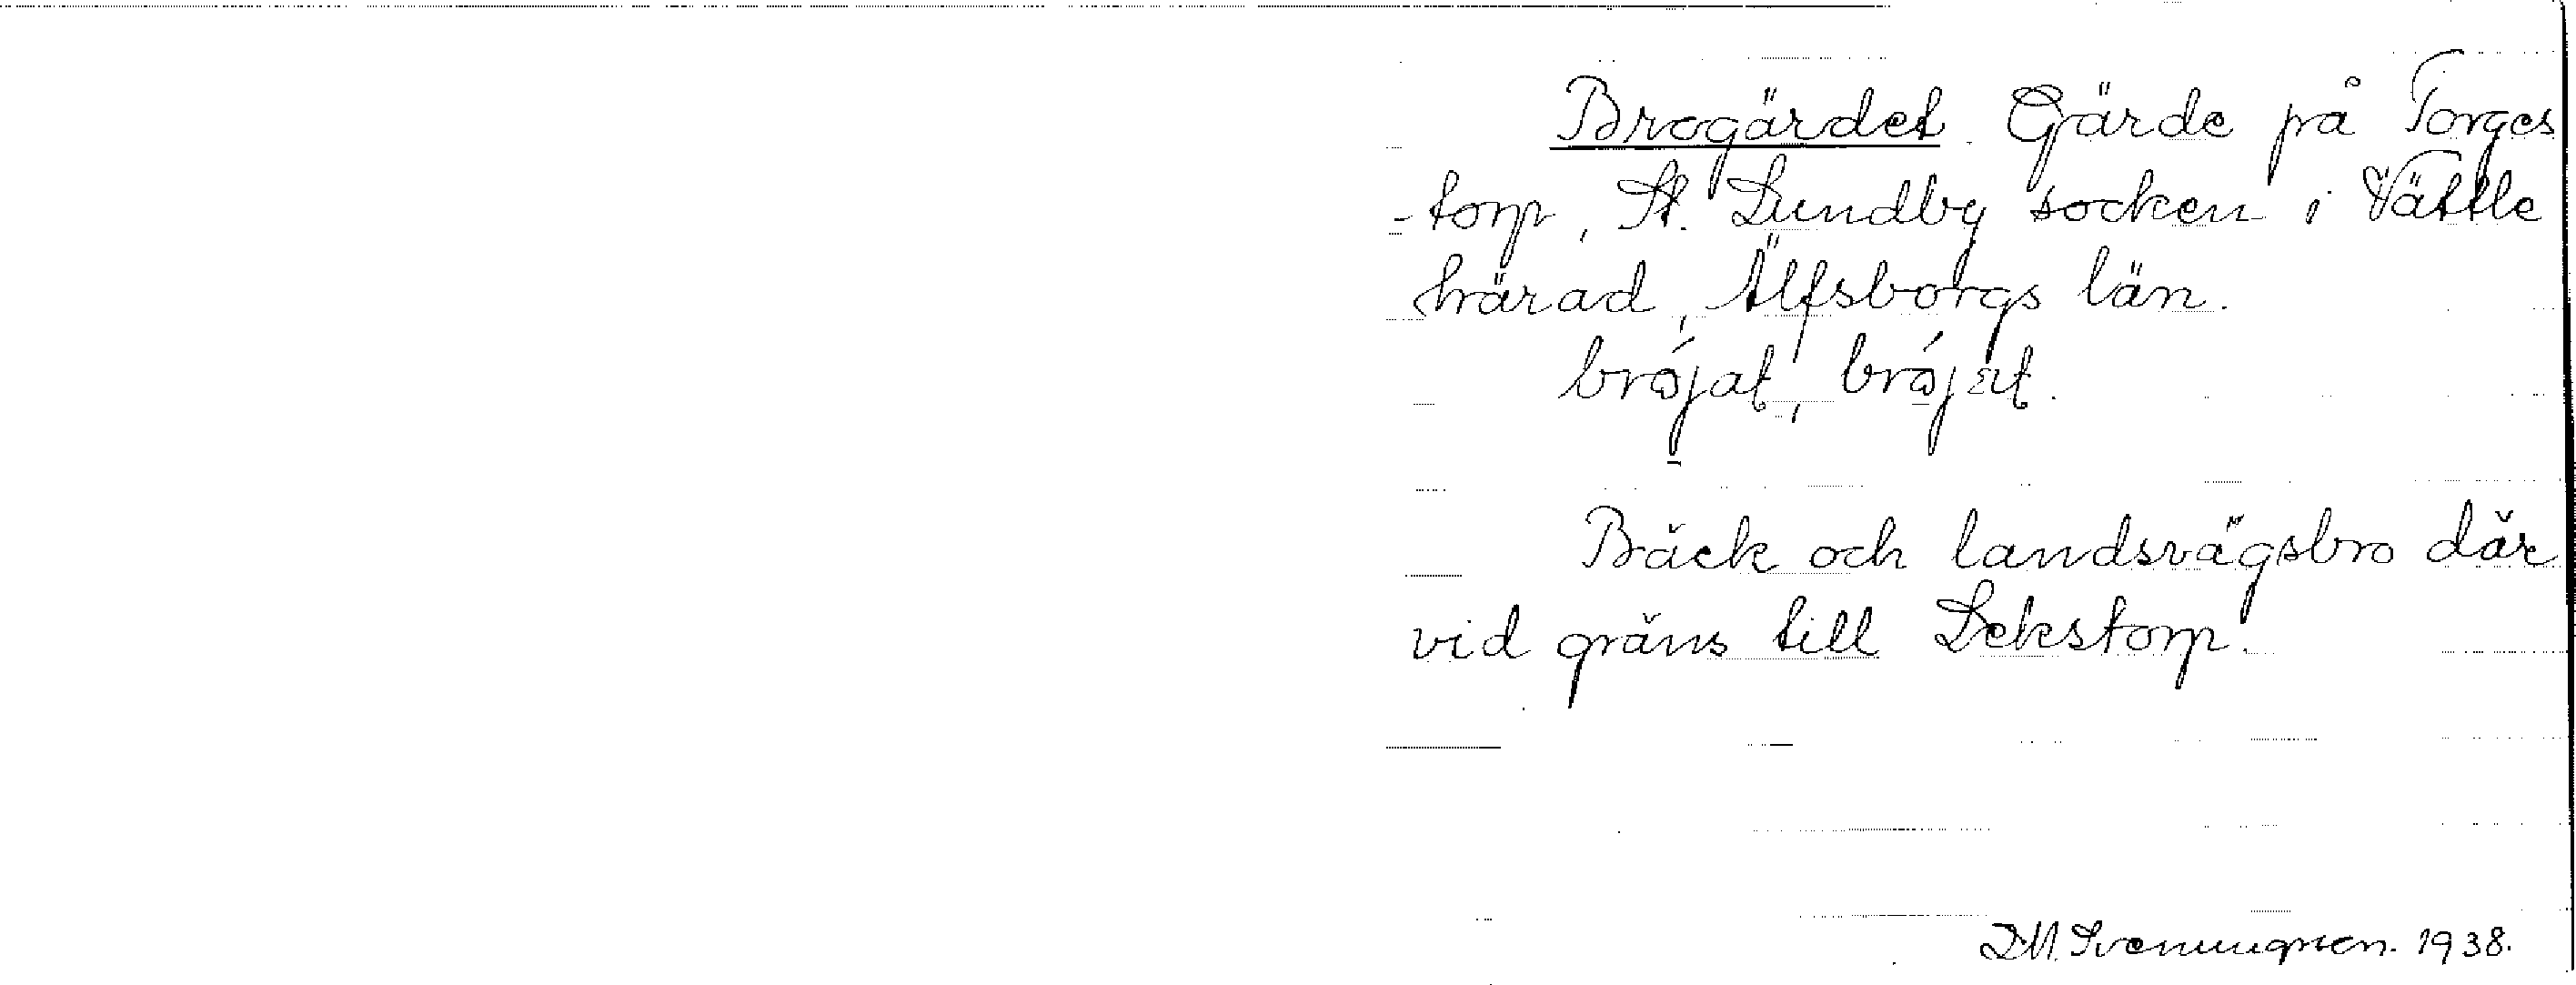 Brogärdet. Gärde på Torges
-torp, St. Lundby socken i Vättle
härad, Älfsborgs län.
brójat, brójat.
Bäck och landsvägsbro där
vid gräns till Lekstorp.
D.M. Svenungsson. 1938.